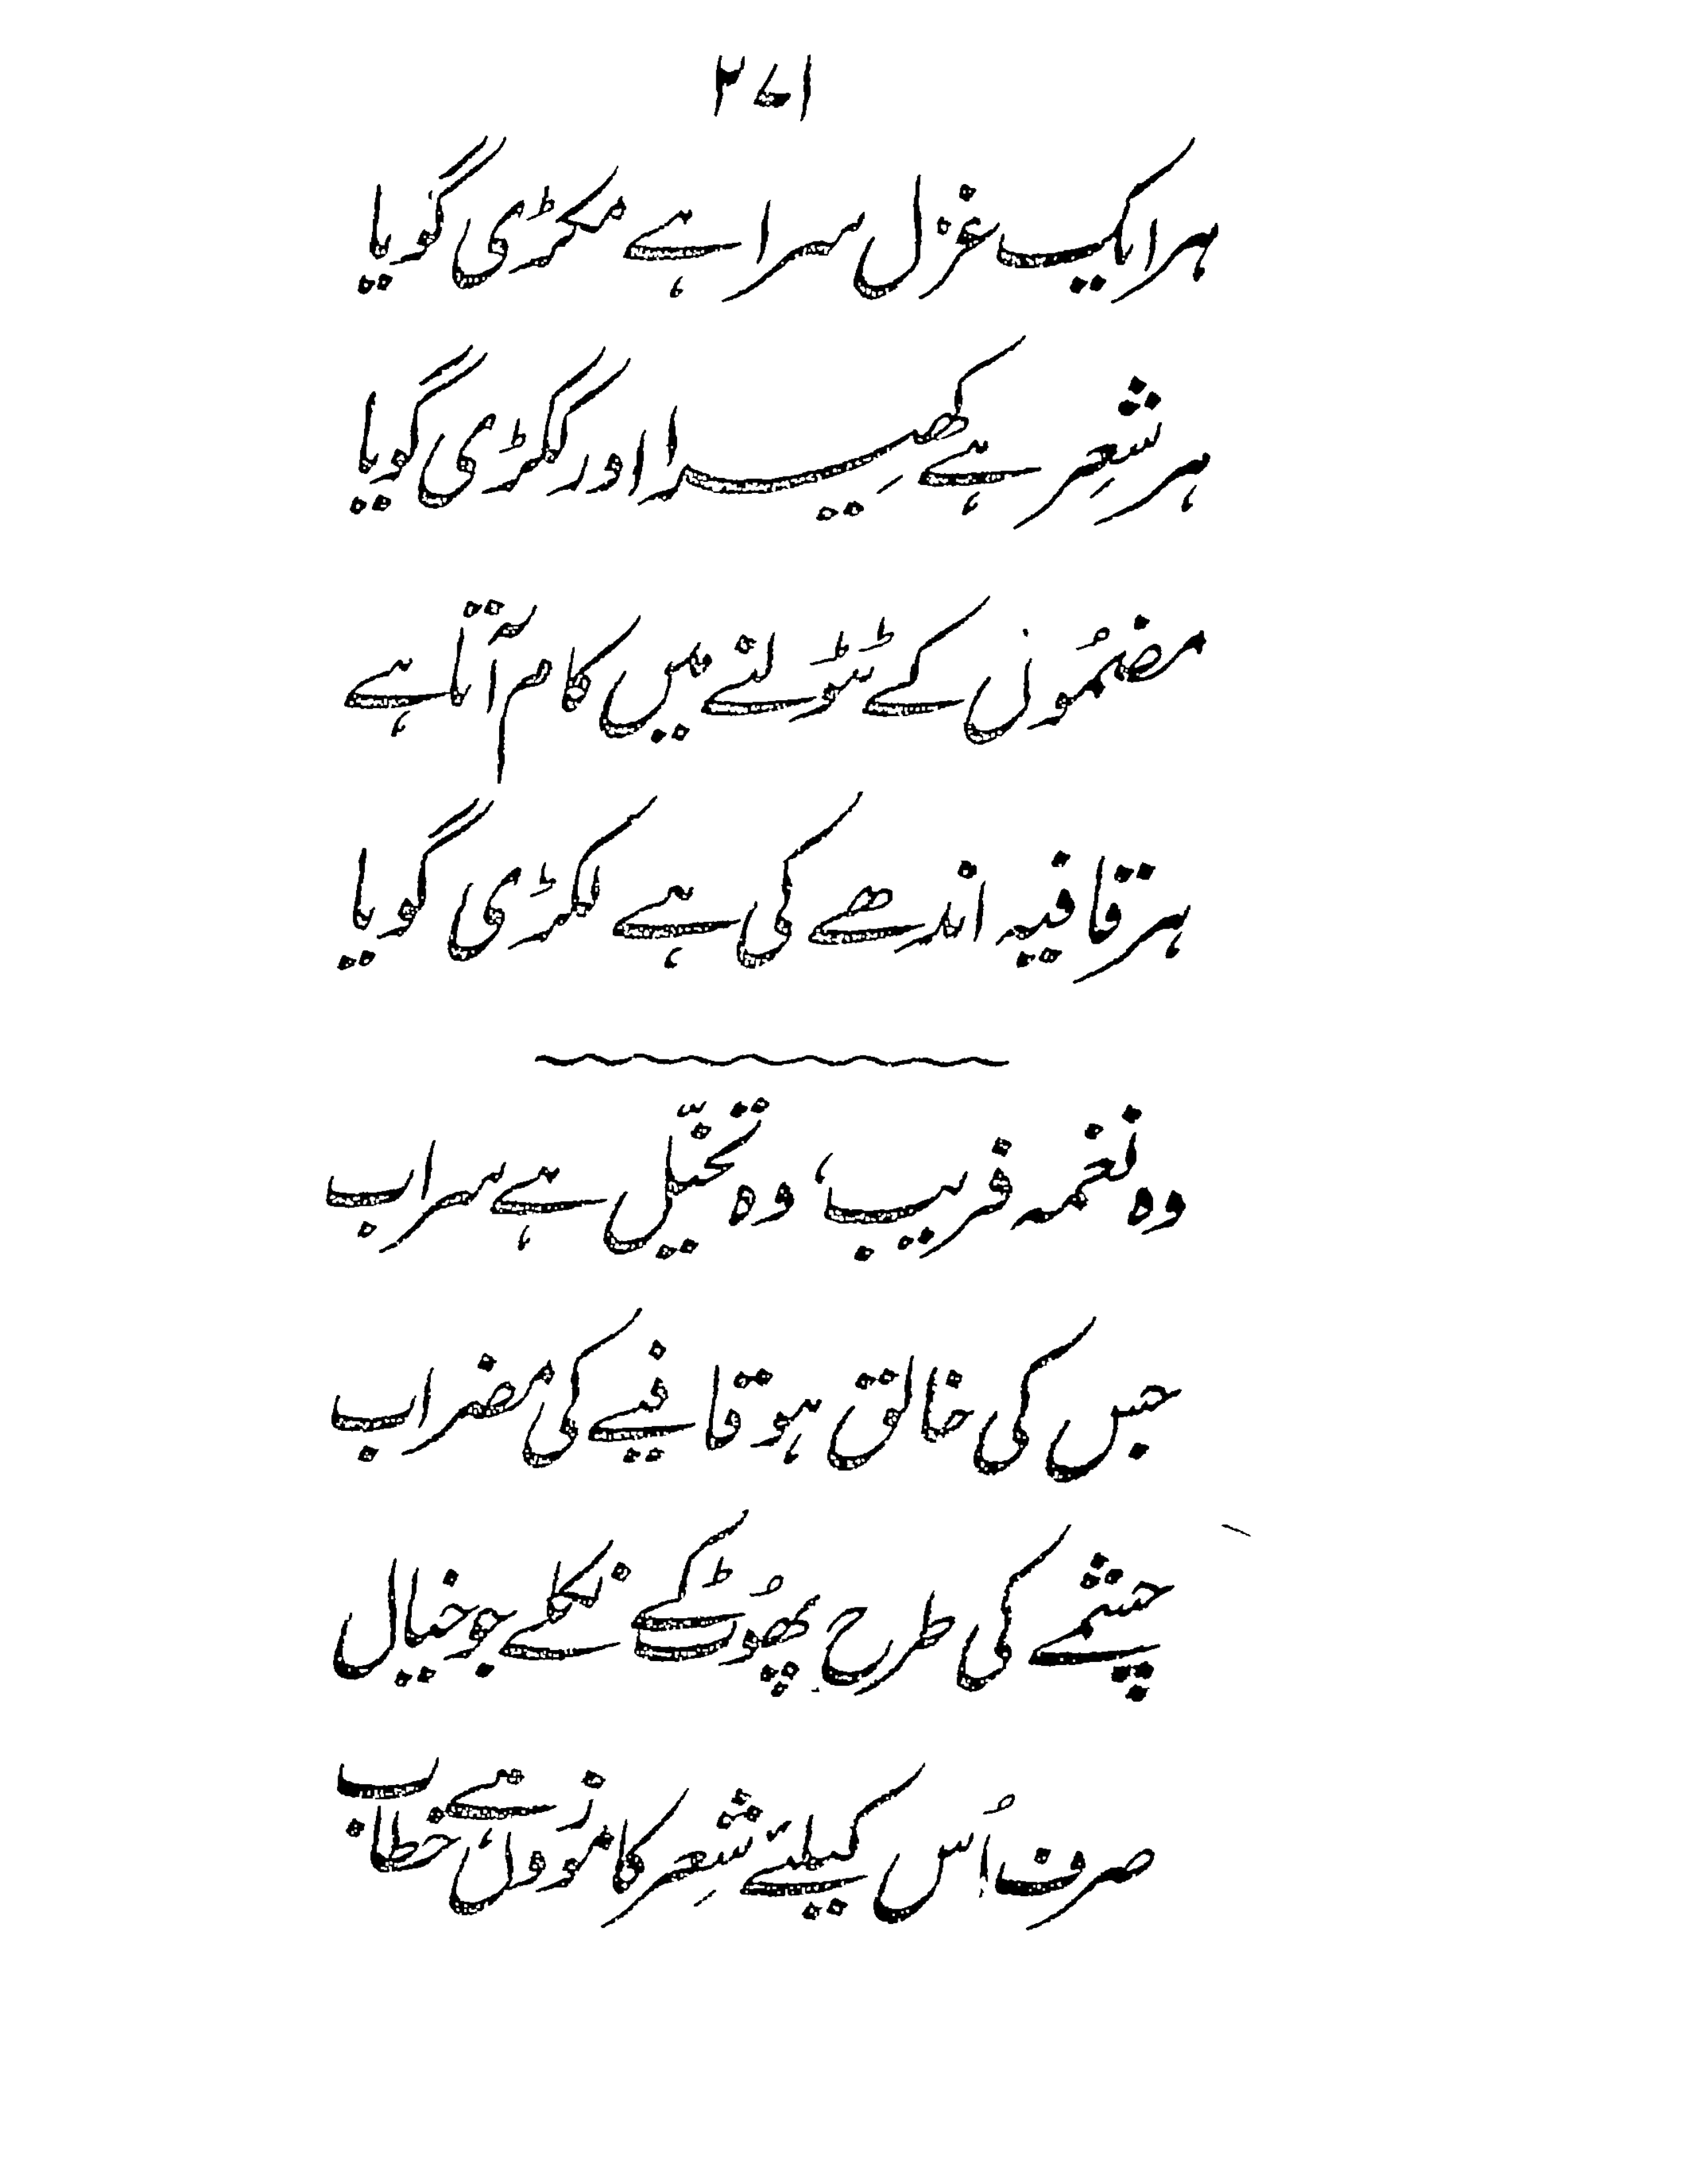 ۲۷۱
ہر ایک غزل سرا ہے مکڑی گویا
ہر شعِر ہے کھِیرا اور ککڑی گویا
مضمُون کے ٹٹولنے میں کام آتا ہے
ہر قافیہ اندھے کی ہے لکڑی گویا
وہ نغمہ فریب، وہ تخیّل ہے سراب
جس کی خالق ہو قافیے کی مضراب
چشمے کی طرح پھُوٹ کے نکلے جو خیال
صرف اُس کیلئے شعِر کا موزوں ہے خطاب